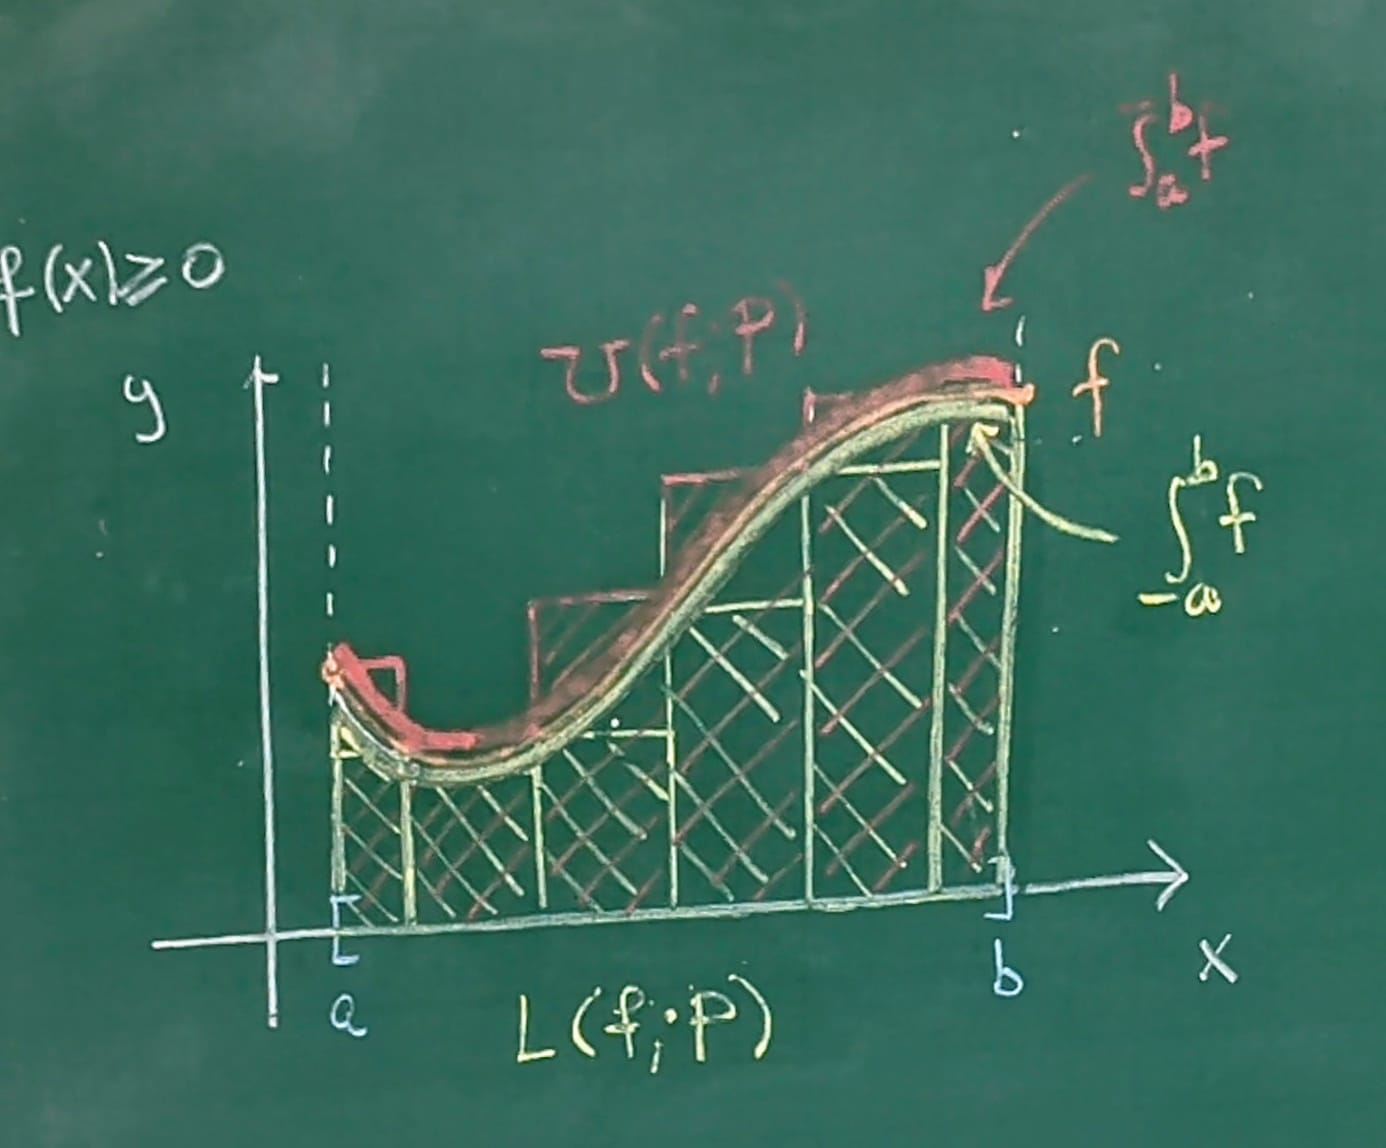 ∫̅ₐᵇ f
f(x)≥0
U(f;P)
y
f
∫̲ₐᵇ f
x
a
b
L(f;P)